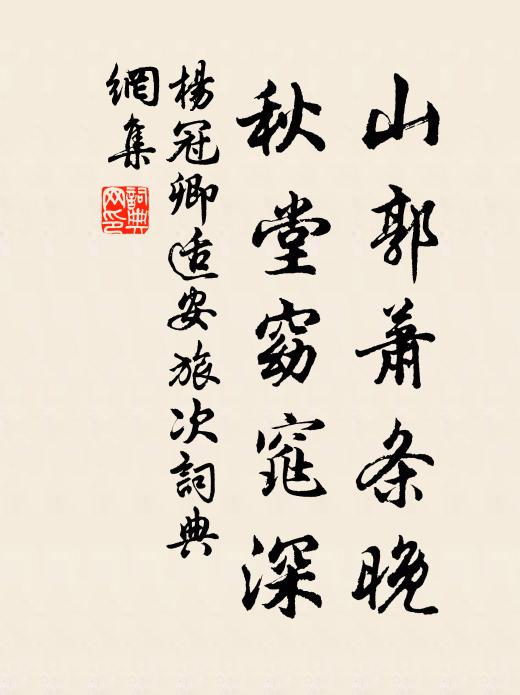 山郭萧条晚
秋堂窈窕深
楊冠卿适安旅次詞典
網集
詞典
网印